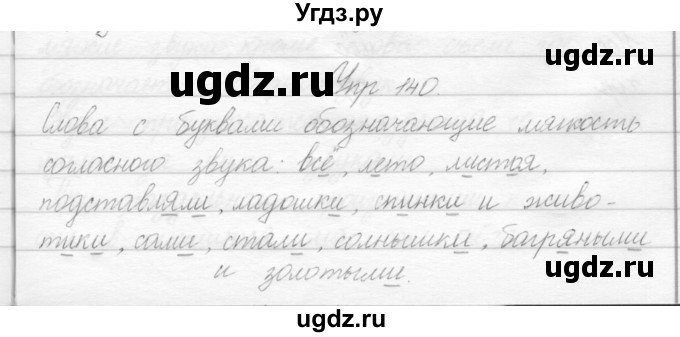 Угдз.ру
ugdz.ru
ugdz.ru
Упр 140.
Слова с буквами обозначающие мягкость
согласного звука: всё, лето, листья,
подставляли, ладошки, спинки и живо-
тики, сами, стали, солнышки, багряными
и золотыми.
ugdz.ru
ugdz.ru
ugdz.ru
ugdz.ru
Угдз.ру